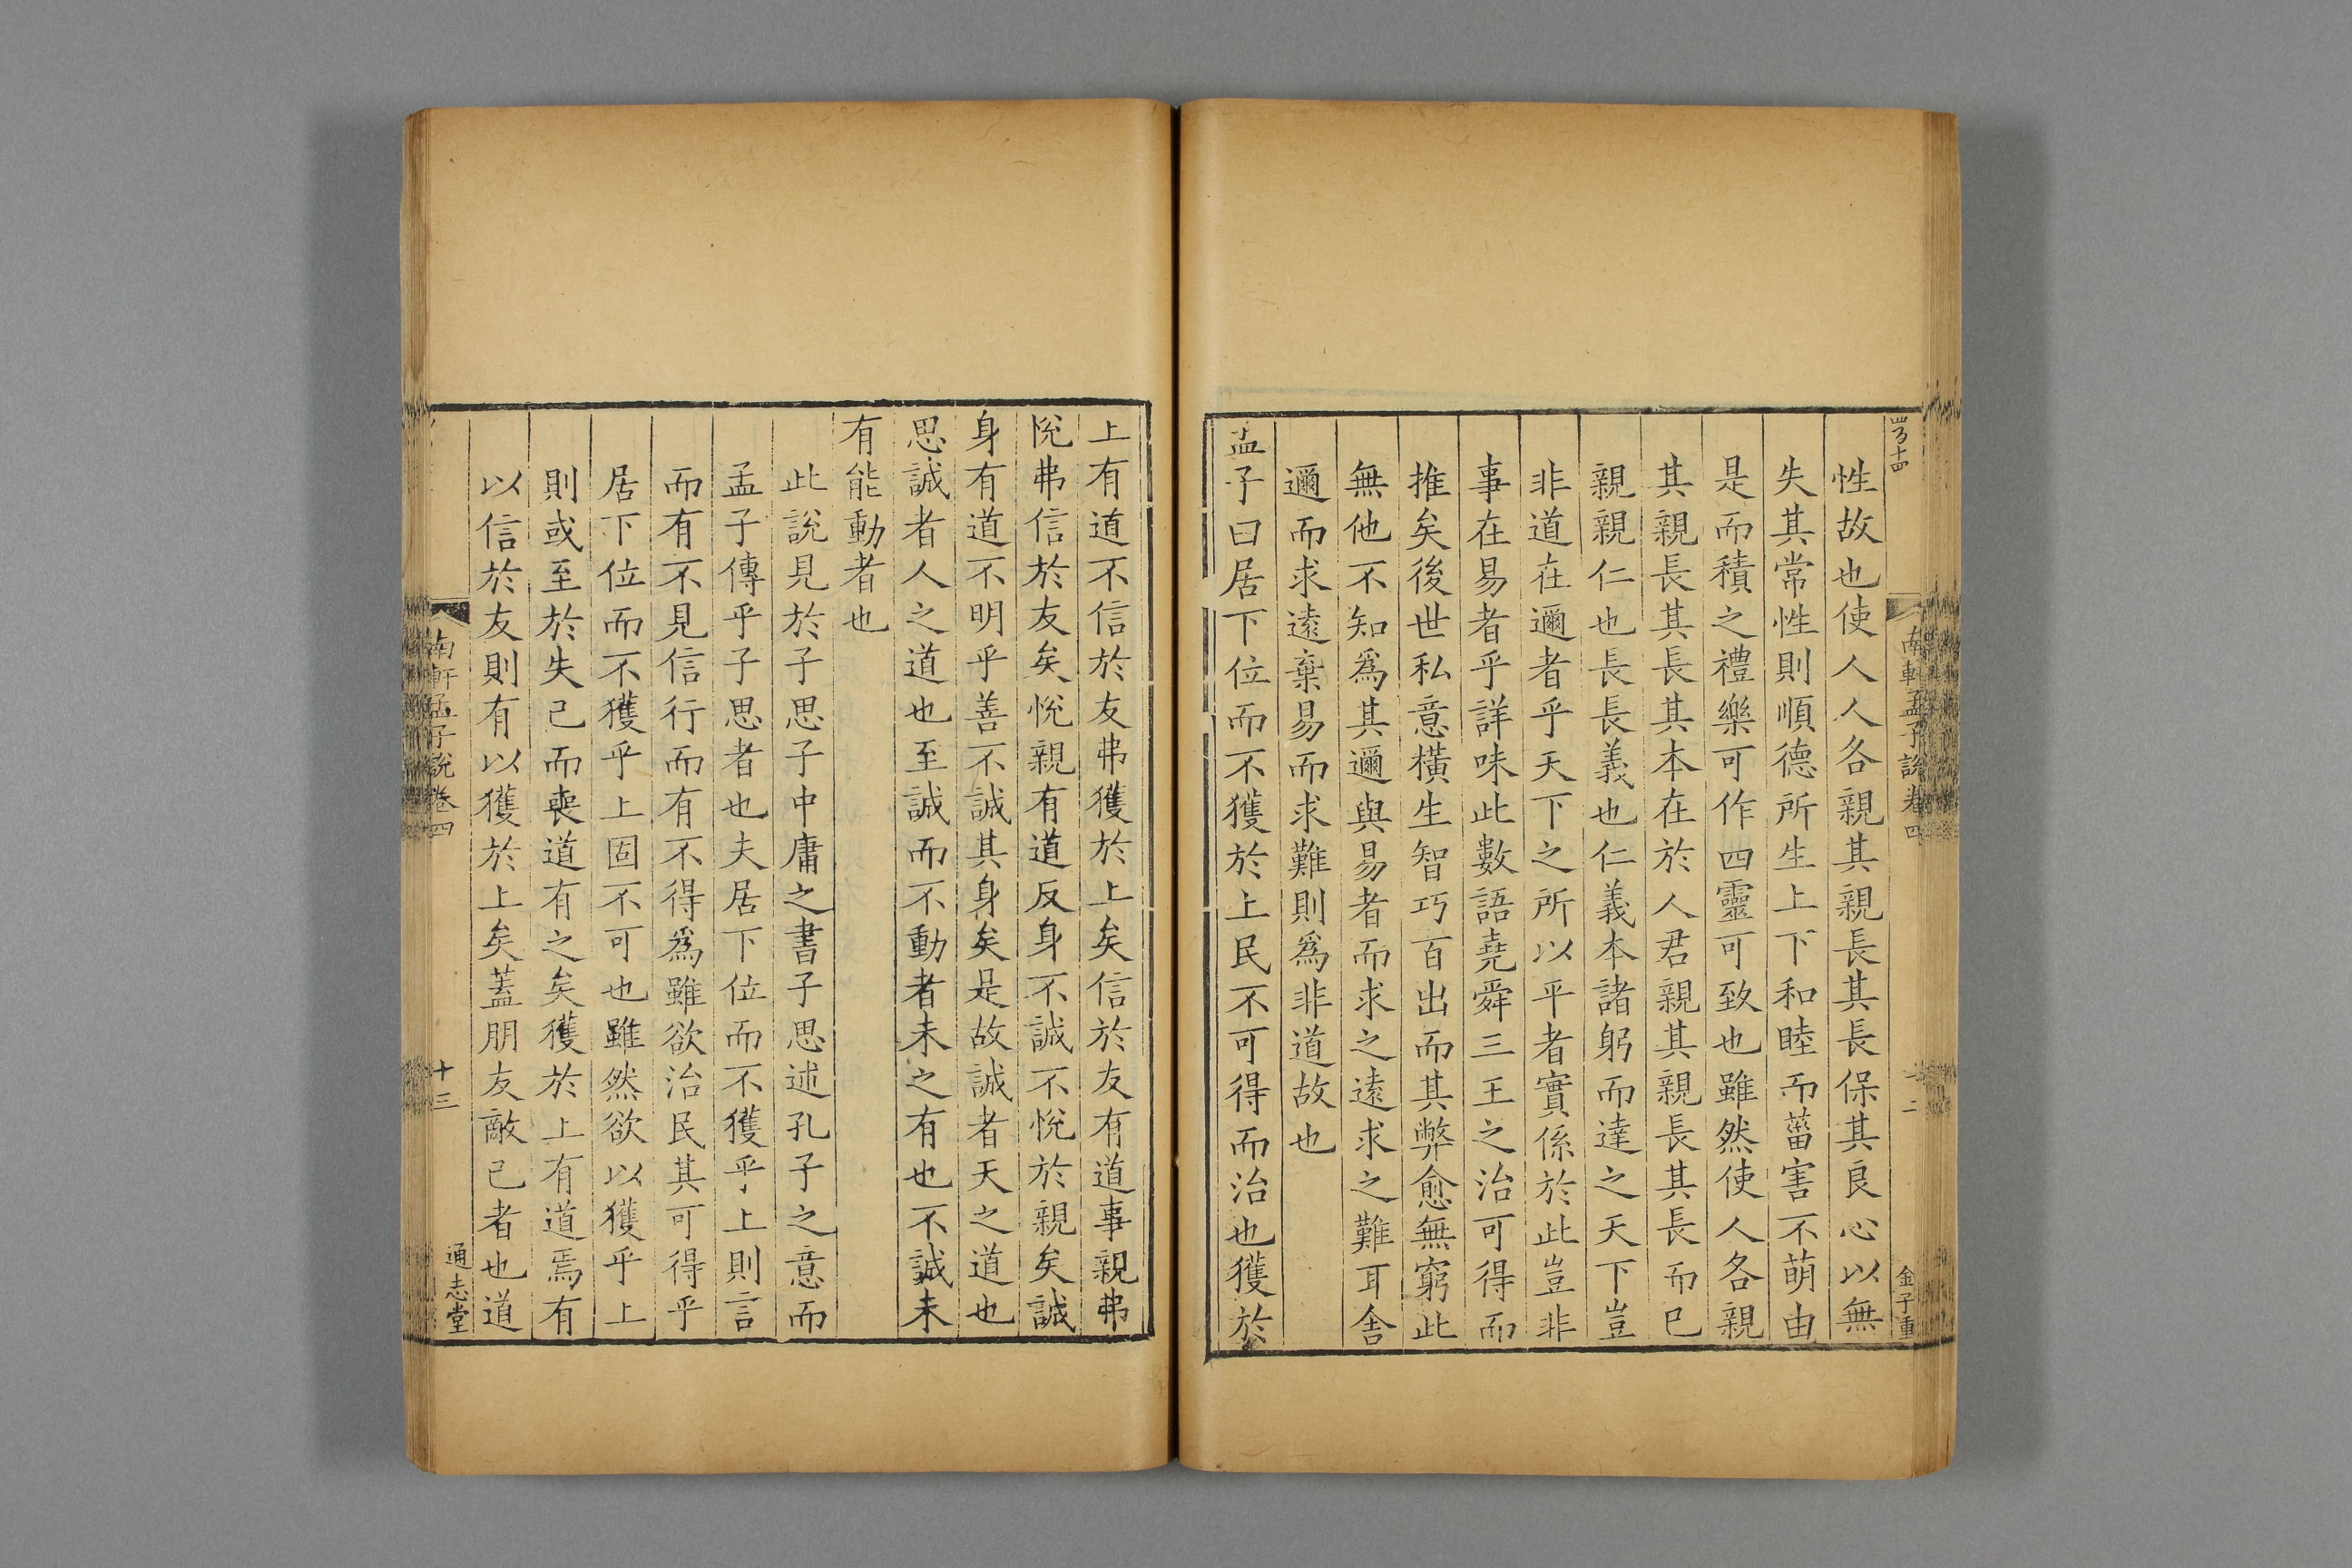 性故也使人人各親其親長其長保其良心以無
失其常性則順德所生上下和睦而菑害不萌由
是而積之禮樂可作四靈可致也雖然使人各親
其親長其長其本在於人君親其親長其長而已
親親仁也長長義也仁義本諸躬而達之天下豈
非道在邇者乎天下之所以平者實係於此豈非
事在易者乎詳味此數語堯舜三王之治可得而
推矣後世私意橫生智巧百出而其弊愈無窮此
無他不知爲其邇與易者而求之遠求之難耳舍
邇而求遠棄易而求難則爲非道故也
孟子曰居下位而不獲於上民不可得而治也獲於
南軒孟子說卷四
金子重
上有道不信於友弗獲於上矣信於友有道事親弗
悅弗信於友矣悅親有道反身不誠不悅於親矣誠
身有道不明乎善不誠其身矣是故誠者天之道也
思誠者人之道也至誠而不動者未之有也不誠未
有能動者也
此說見於子思子中庸之書子思述孔子之意而
孟子傳乎子思者也夫居下位而不獲乎上則言
而有不見信行而有不得爲雖欲治民其可得乎
居下位而不獲乎上固不可也雖然欲以獲乎上
則或至於失己而喪道有之矣獲於上有道焉有
以信於友則有以獲於上矣蓋朋友敵已者也道
南軒孟子說卷四
十三
通志堂